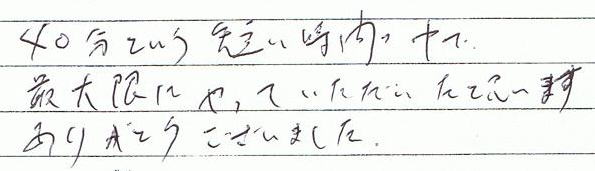 40分という短い時間の中で、
最大限にやっていただいたと思います
ありがとうございました。